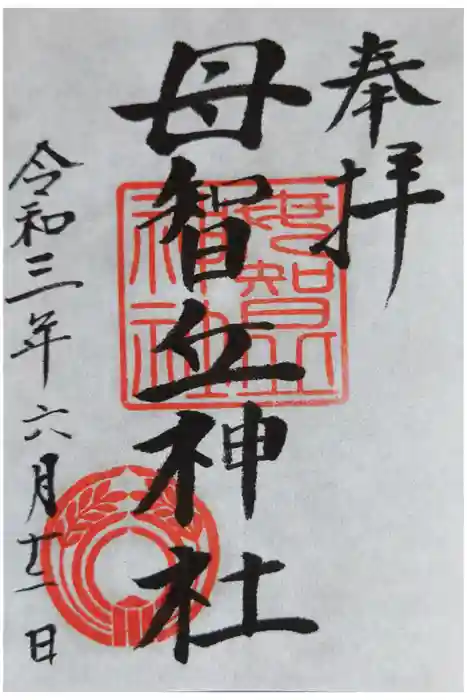 奉拝
母智丘神社
令和三年六月廿一日
母智丘
神社